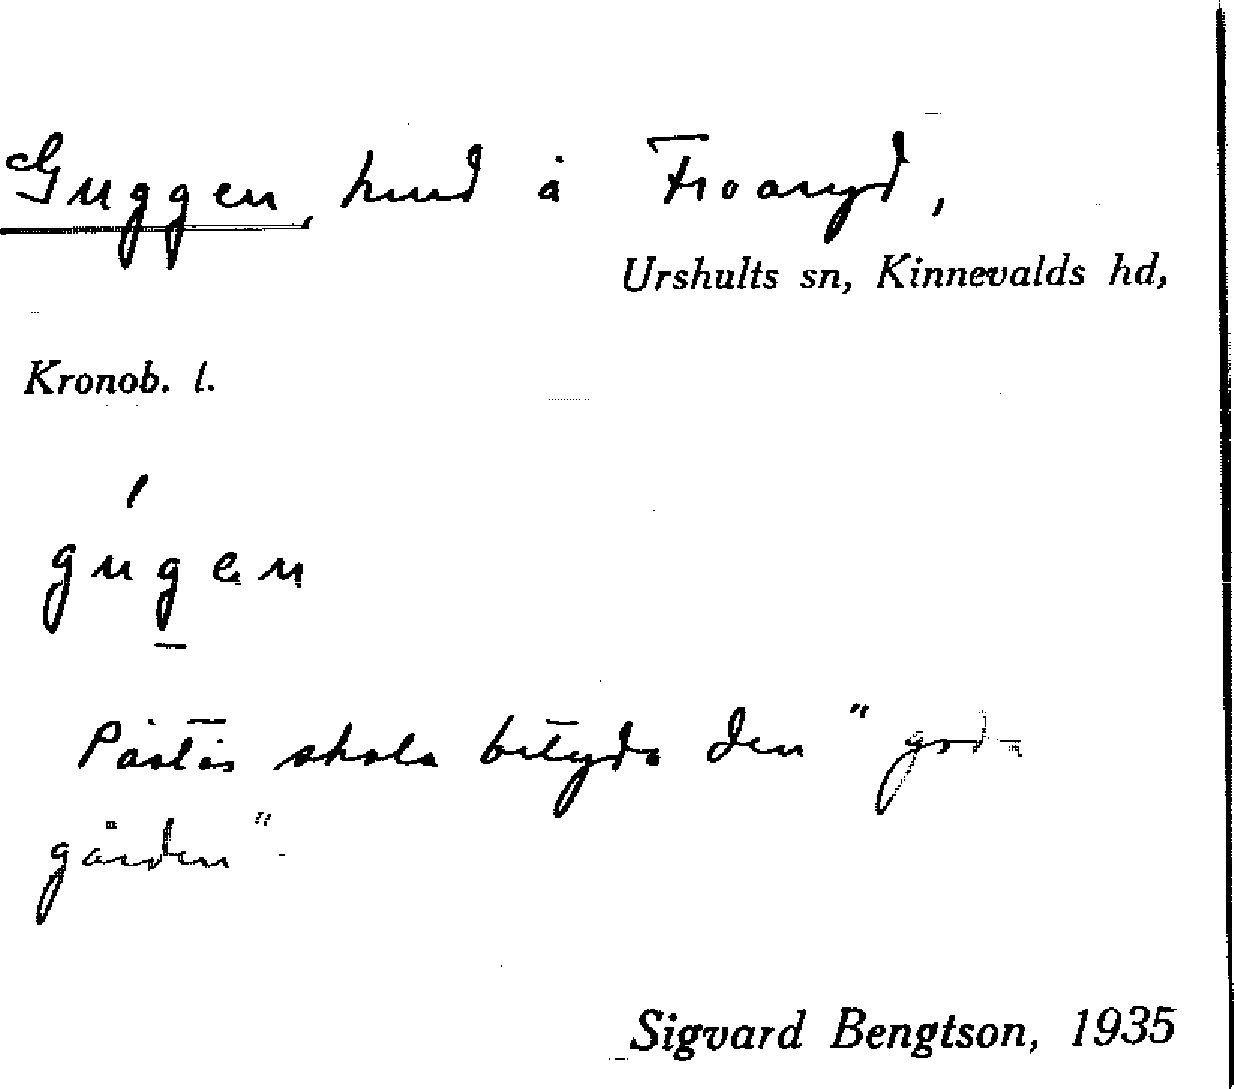 Guggen, hmd å Froaryd,
Urshults sn, Kinnevalds hd,
Kronob. l.
gúgen
Påstås skola betyda den "goda
gården".
Sigvard Bengtson, 1935